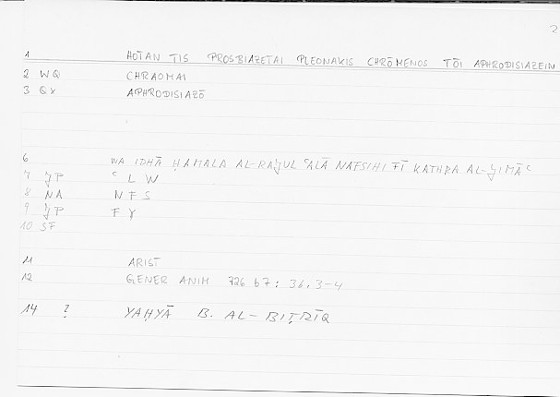 2
1 HOTAN TIS PROSBIAZETAI PLEONAKIS CHRŌMENOS TŌI APHRODISIAZEIN
2 WQ CHRAOMAI
3 GX APHRODISIAZŌ
6 WA IDHĀ ḤAMALA AL-RAǦUL ʿALĀ NAFSIHI FĪ KATHRA AL-ǦIMĀʿ
7 ǦP ʿ L W
8 NA N F S
9 ǦP F Y
10 SF
11 ARIST
12 GENER ANIM 726 b7; 36, 3-4
14 ? YAḤYĀ B. AL-BIṬRĪQ